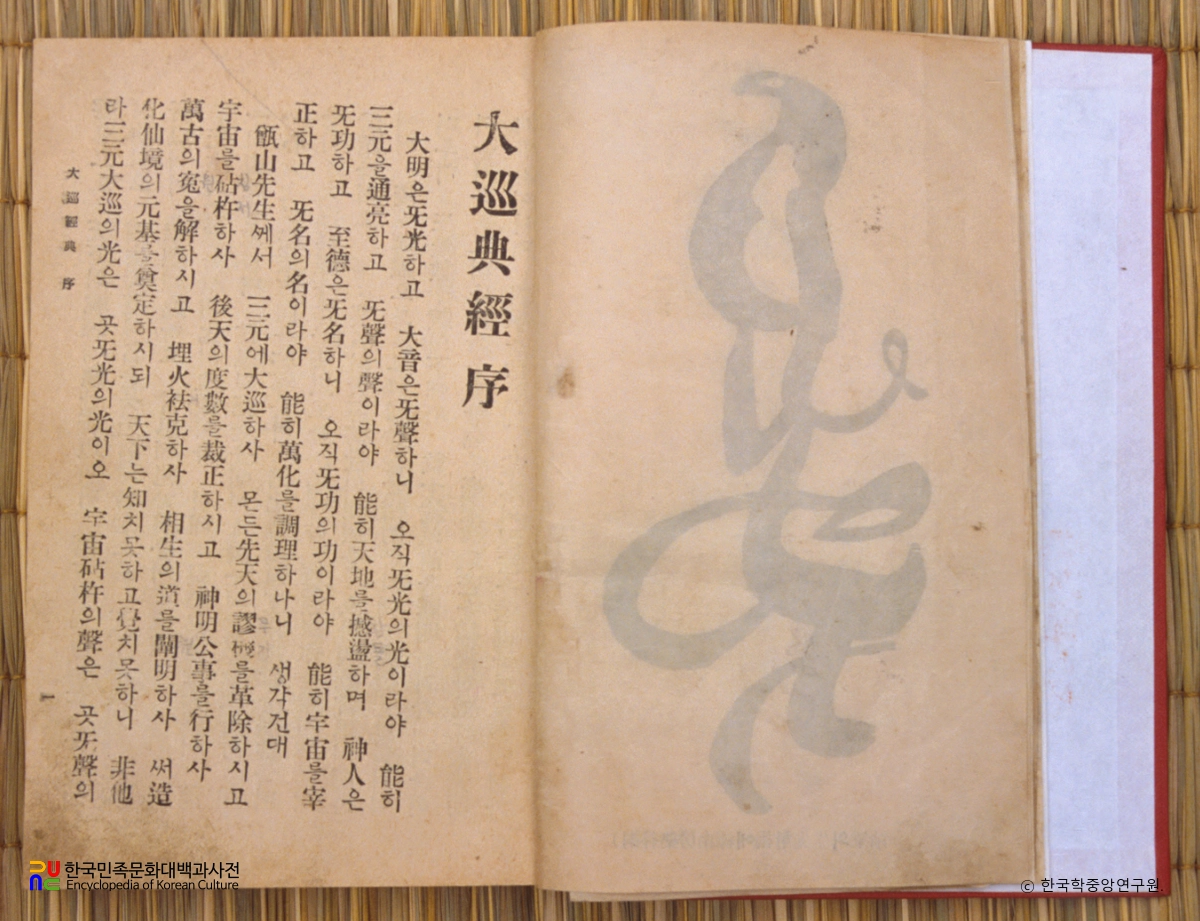 大巡典經序
大明은旡光하고 大音은旡聲하니 오직旡光의光이라야 能히
三元을通亮하고 旡聲의聲이라야 能히天地를撼盪하며 神人은
旡功하고 至德은旡名하니 오직旡功의功이라야 能히宇宙를宰
正하고 旡名의名이라야 能히萬化를調理하나니 생각건대
甑山先生께서 三元에大巡하사 모든先天의謬를革除하시고
宇宙를砧杵하사 後天의度數를裁正하시고 神明公事를行하사
萬古의寃을解하시고 埋火袪克하사 相生의道를闡明하사 써造
化仙境의元基를奠定하시되 天下는知치못하고覺치못하니 非他
라三元大巡의光은 곳旡光의光이오 宇宙砧杵의聲은 곳旡聲의
大巡經典 序
한국민족문화대백과사전
Encyclopedia of Korean Culture
© 한국학중앙연구원.